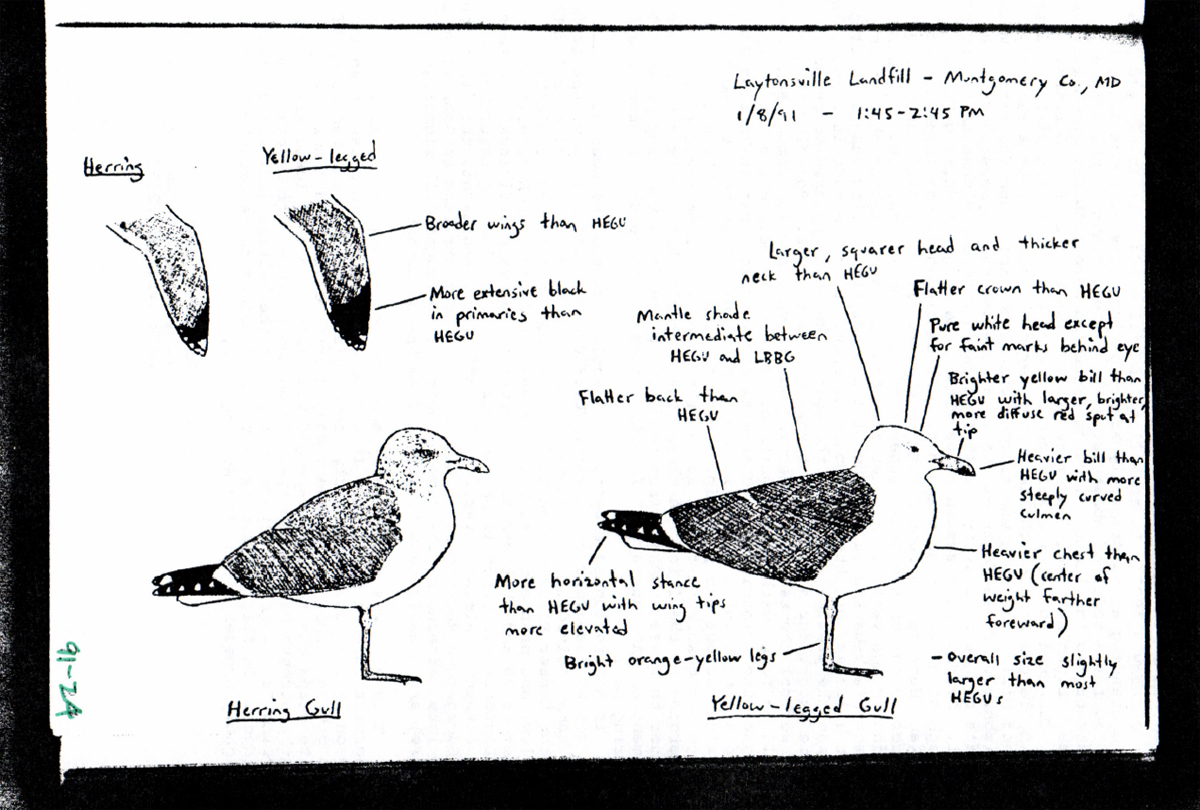 Laytonsville Landfill - Muntgomery Co., MD
1/8/91 - 1:45-2:45 PM
Herring
Yellow-legged
Broader wings than HEGU
More extensive black
in primaries than
HEGU
Larger, squarer head and thicker
neck than HEGU
Flatter crown than HEGU
Pure white head except
for faint marks behind eye
Mantle shade
intermediate between
HEGU and LBBG
Brighter yellow bill than
HEGU with larger, brighter,
more diffuse red spot at
tip
Flatter back than
HEGU
Heavier bill than
HEGU with more
steeply curved
culmen
Heavier chest than
HEGU (center of
weight farther
foreward)
More horizontal stance
than HEGU with wing tips
more elevated
Bright orange-yellow legs
- Overall size slightly
larger than most
HEGUs
Herring Gull
Yellow-legged Gull
91-24